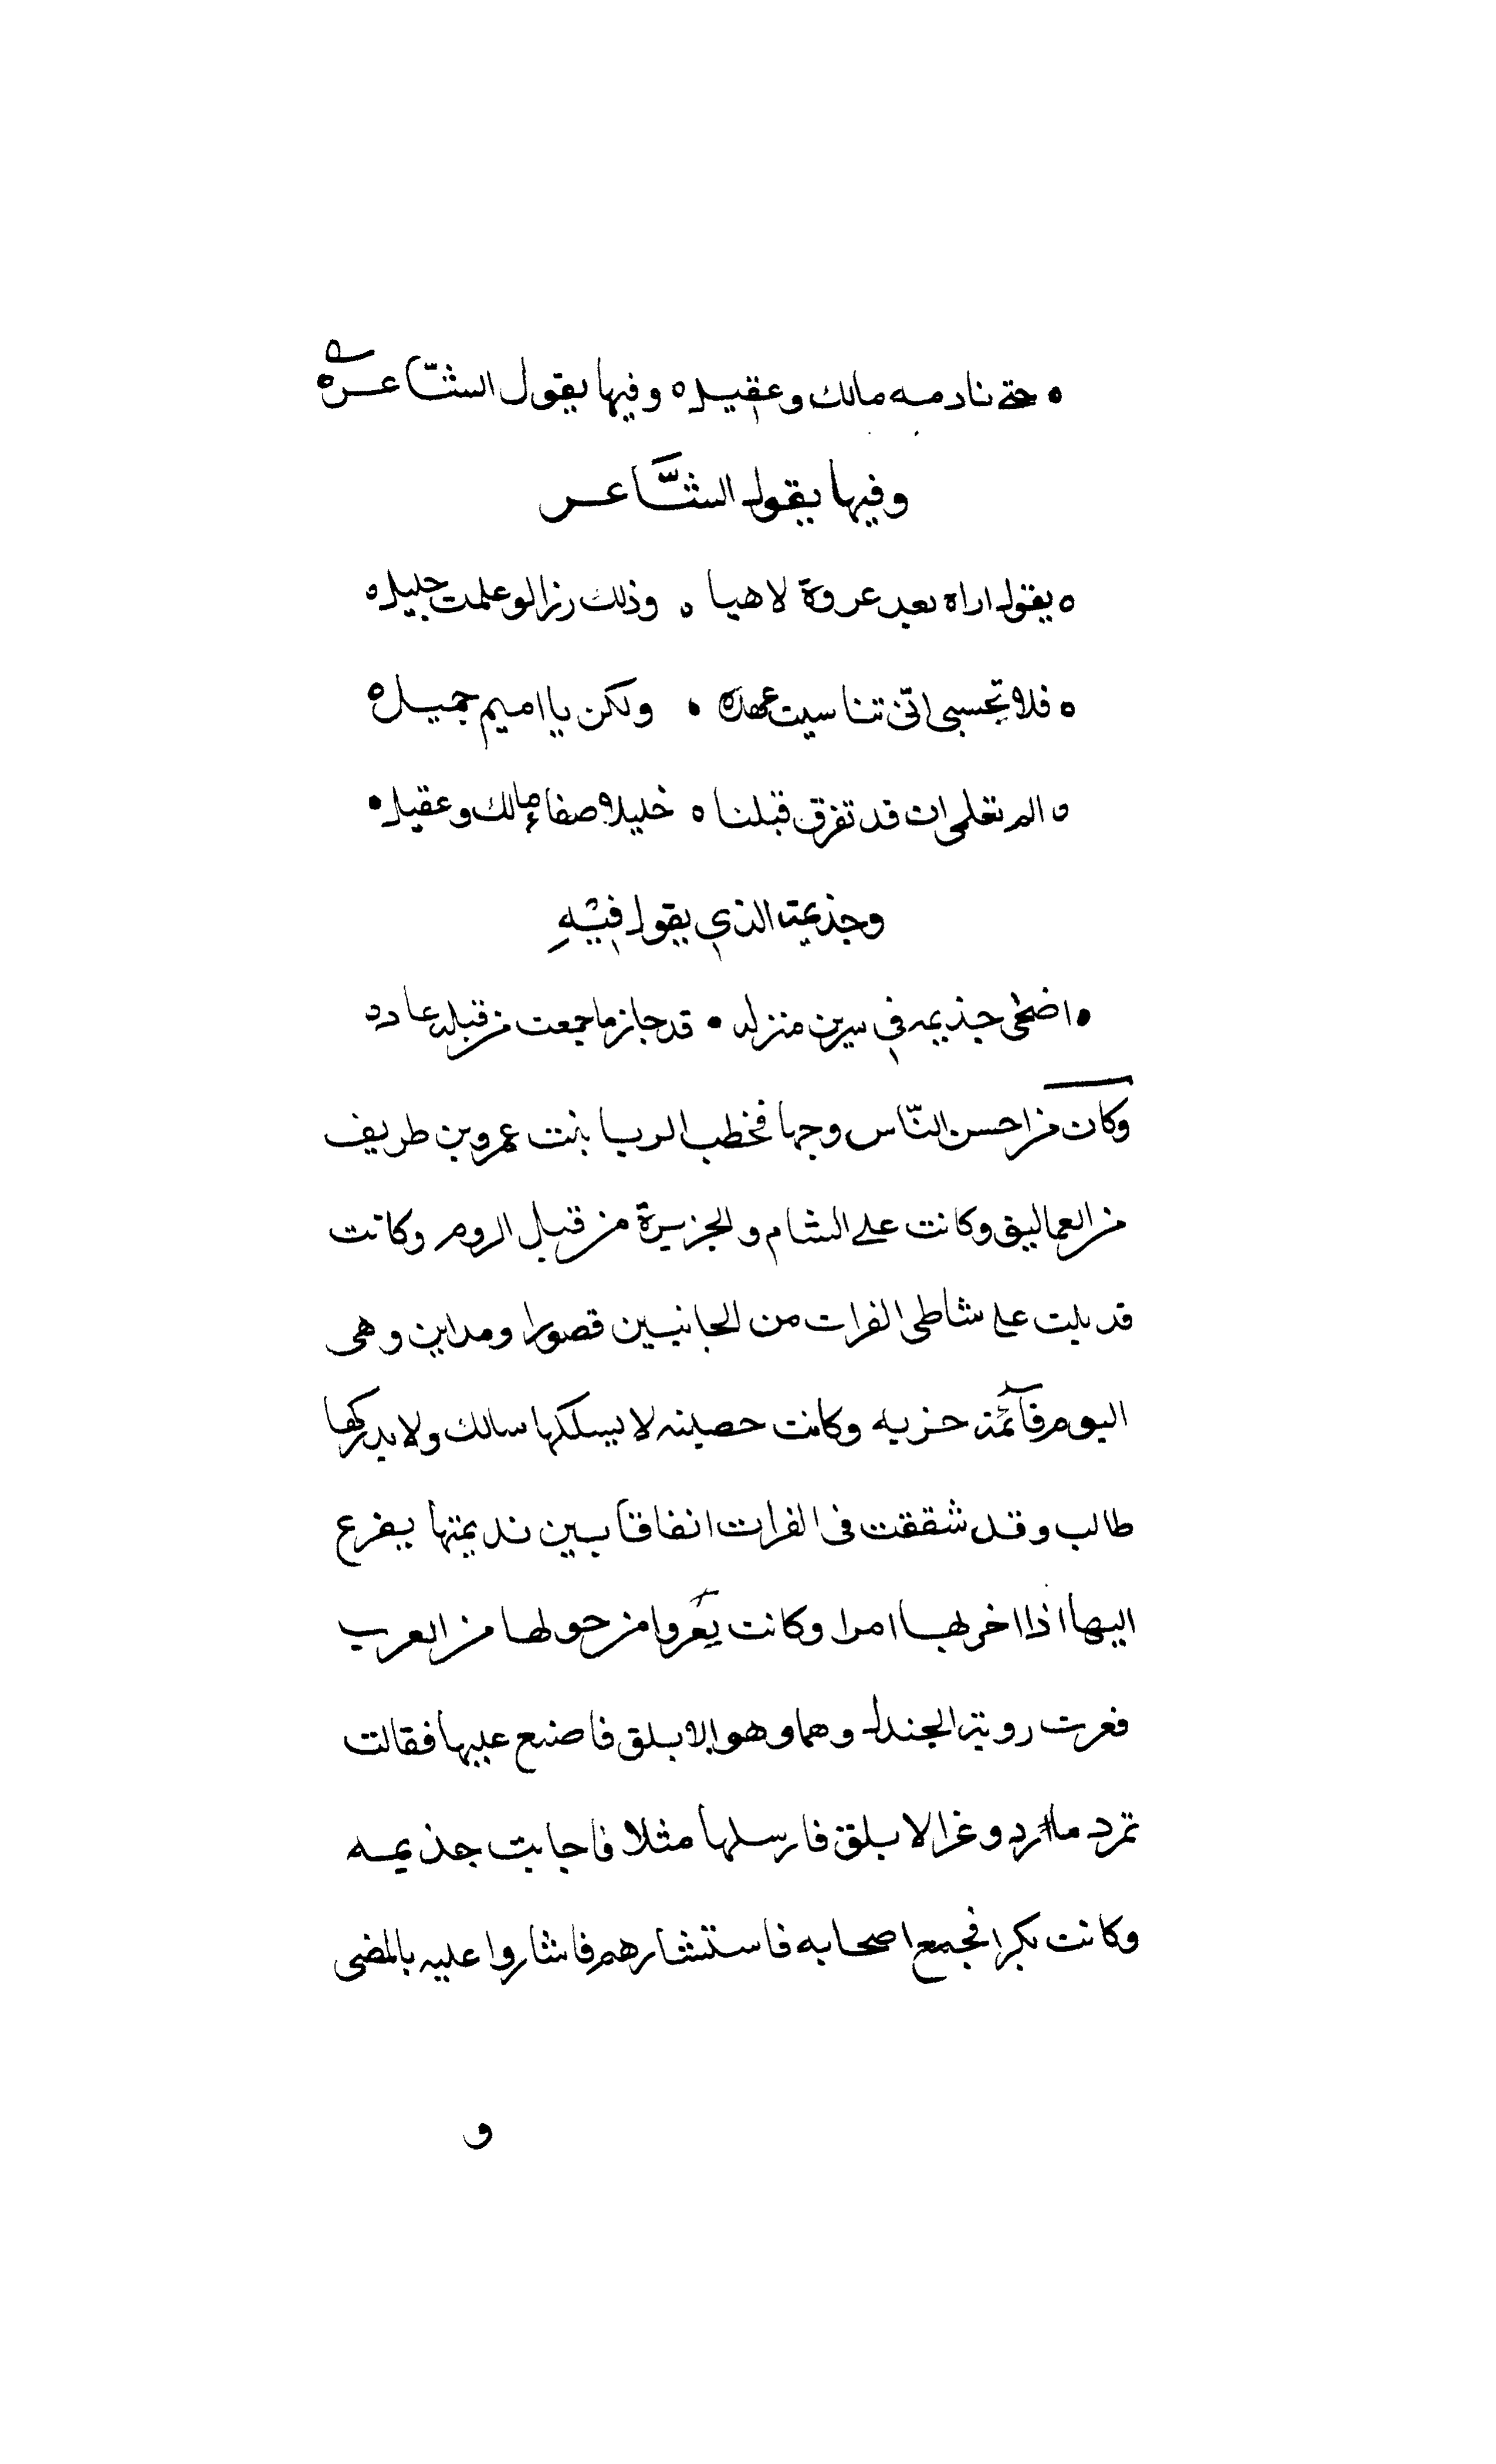 • حتى نادمه مالك وعقيل ه وفيها يقول الشّاعر ه
وفيها يقول الشَّاعر
ه يقول اراه بعد عروة لاهيا ه وذلك رزا لو علمت جليل ه
ه فلا تحسبى انّى تناسيت عهده • ولكن يا اميم جميل ه
ه الم تعلمى ان قد تفرق قبلنا ه خليلا صفاء مالك وعقيل •
وجذيمة الذي يقول فيه
• اضحى جذيمه في سيرين منزله • قد حاز ما جمعت من قبله عاد ه
وكان من احسن النّاس وجها فخطب الربا بنت عمرو بن طريف
من العماليق وكانت على الشام والجزيرة من قبل الروم وكانت
قد بنت على شاطى الفرات من الجانبين قصورا ومداين وهى
اليوم قآئمة خربه وكانت حصينه لا يسلكها سالك ولا يدركها
طالب وقد شققت فى الفرات انفاقا بين نديمتها يفزع
اليها اذا اخر لها امرا وكانت يغروا من حولها من العرب
فعرت رويتر الجندل وهما وهو الابلق فاصنع عليها فقالت
تمرد مارد وغرا لابلق فارسلها مثلا فاجابت جذيمه
وكانت بكرا فجمع اصحابه فاستشارهم فاشاروا عليه بالمضى
و